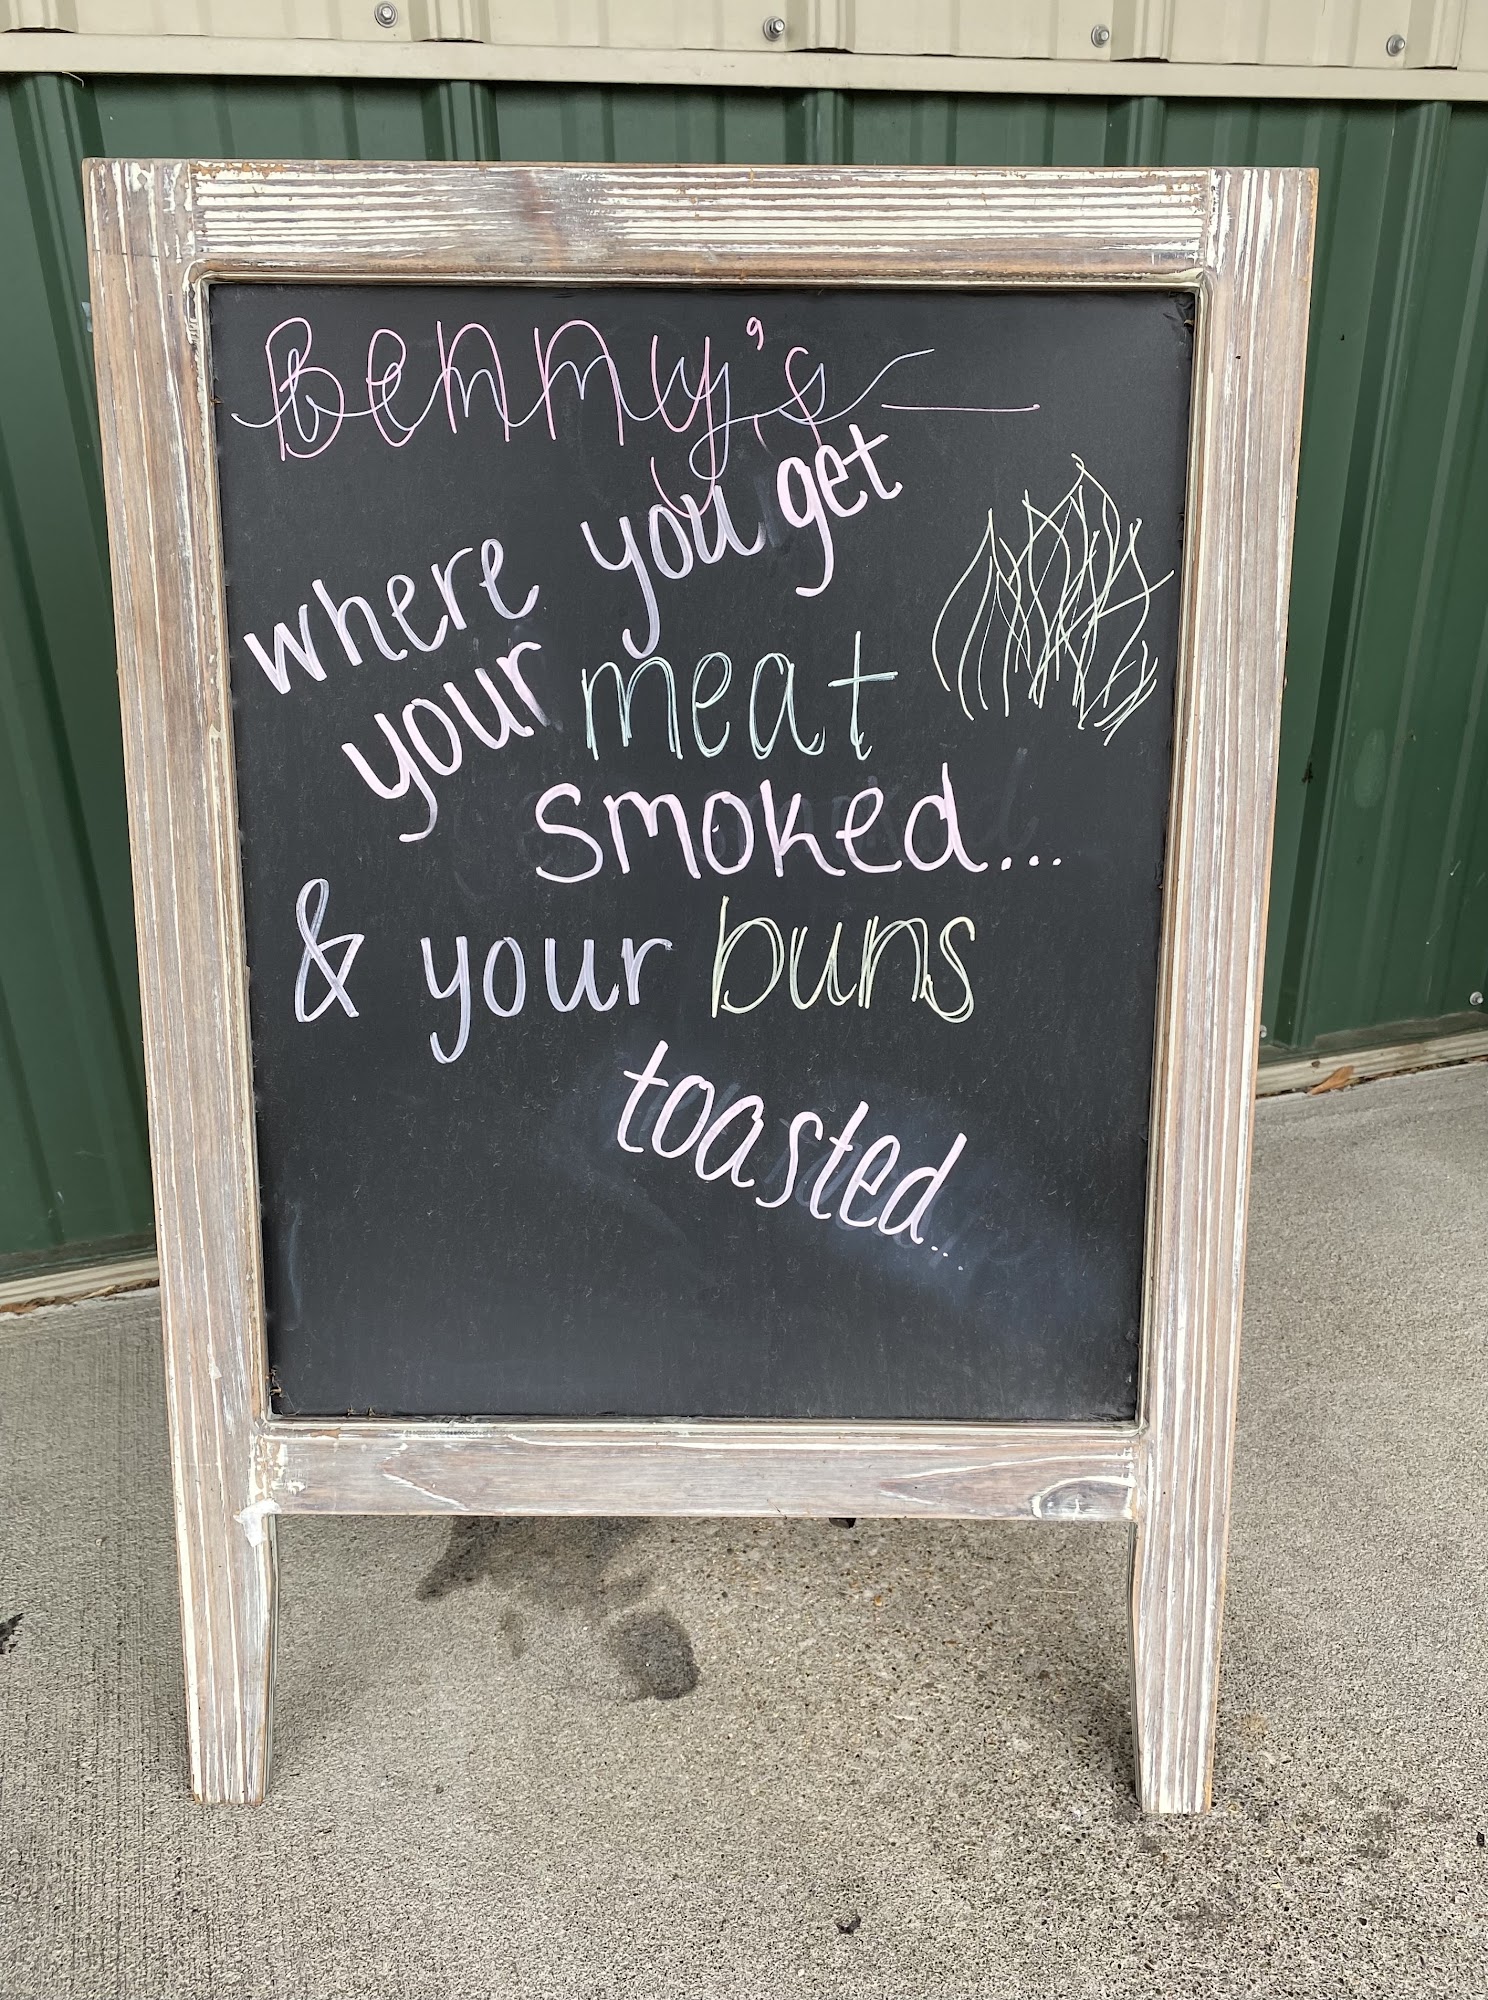 Benny's
where you get
your meat
smoked...
& your buns
toasted...